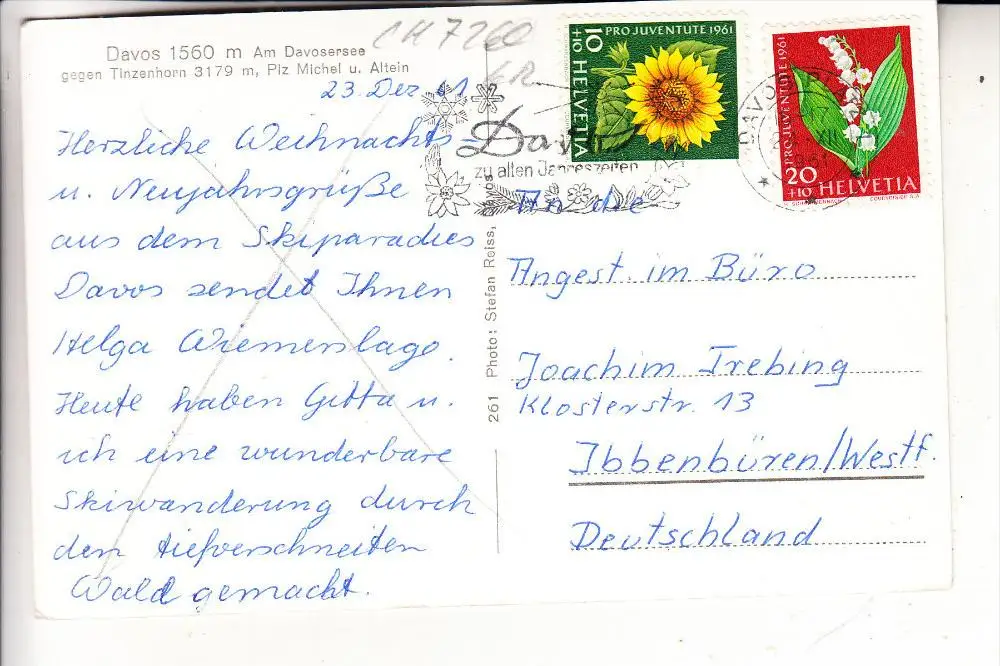 Davos 1560 m Am Davosersee
gegen Tinzenhorn 3179 m, Piz Michel u. Altein
CH 7260
23. Dez. 61
Herzliche Weihnachts
u. Neujahrsgrüße
aus dem Skiparadies
Davos sendet Ihnen
Helga Wiemerslage.
Heute haben Gitta u.
ich eine wunderbare
Skiwanderung durch
den tiefverschneiten
Wald gemacht.
261 Photo: Stefan Reiss,
Davos
zu allen Jahreszeiten
10
+10
PRO JUVENTUTE 1961
HELVETIA
DAVOS
PRO JUVENTUTE 1961
20
+10 HELVETIA
COURVOISIER S.A.
An die
Angest. im Büro
Joachim Trebing
Klosterstr. 13
Ibbenbüren/Westf.
Deutschland